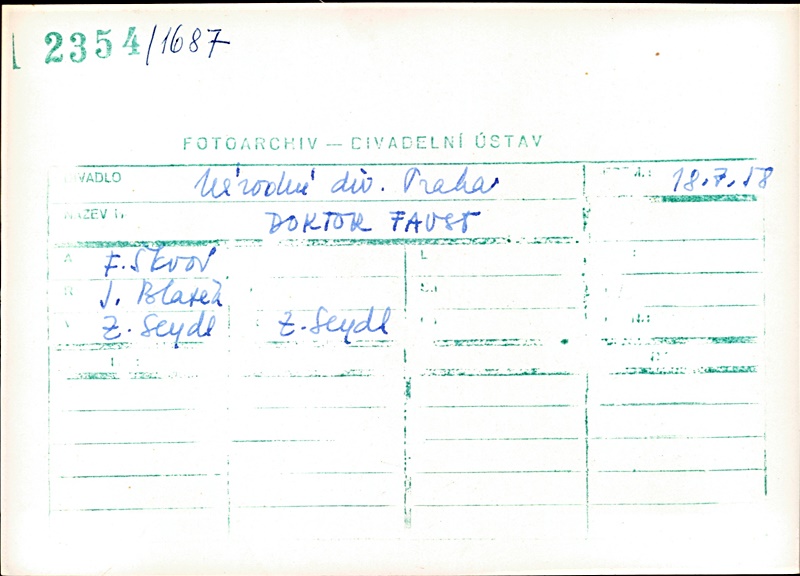 2354/1687
FOTOARCHIV — DIVADELNÍ ÚSTAV
DIVADLO Národní div. Praha 18.7.58
NÁZEV I. DOKTOR FAUST
A F. Škvor
R J. Blažek
V Z. Seydl Z. Seydl